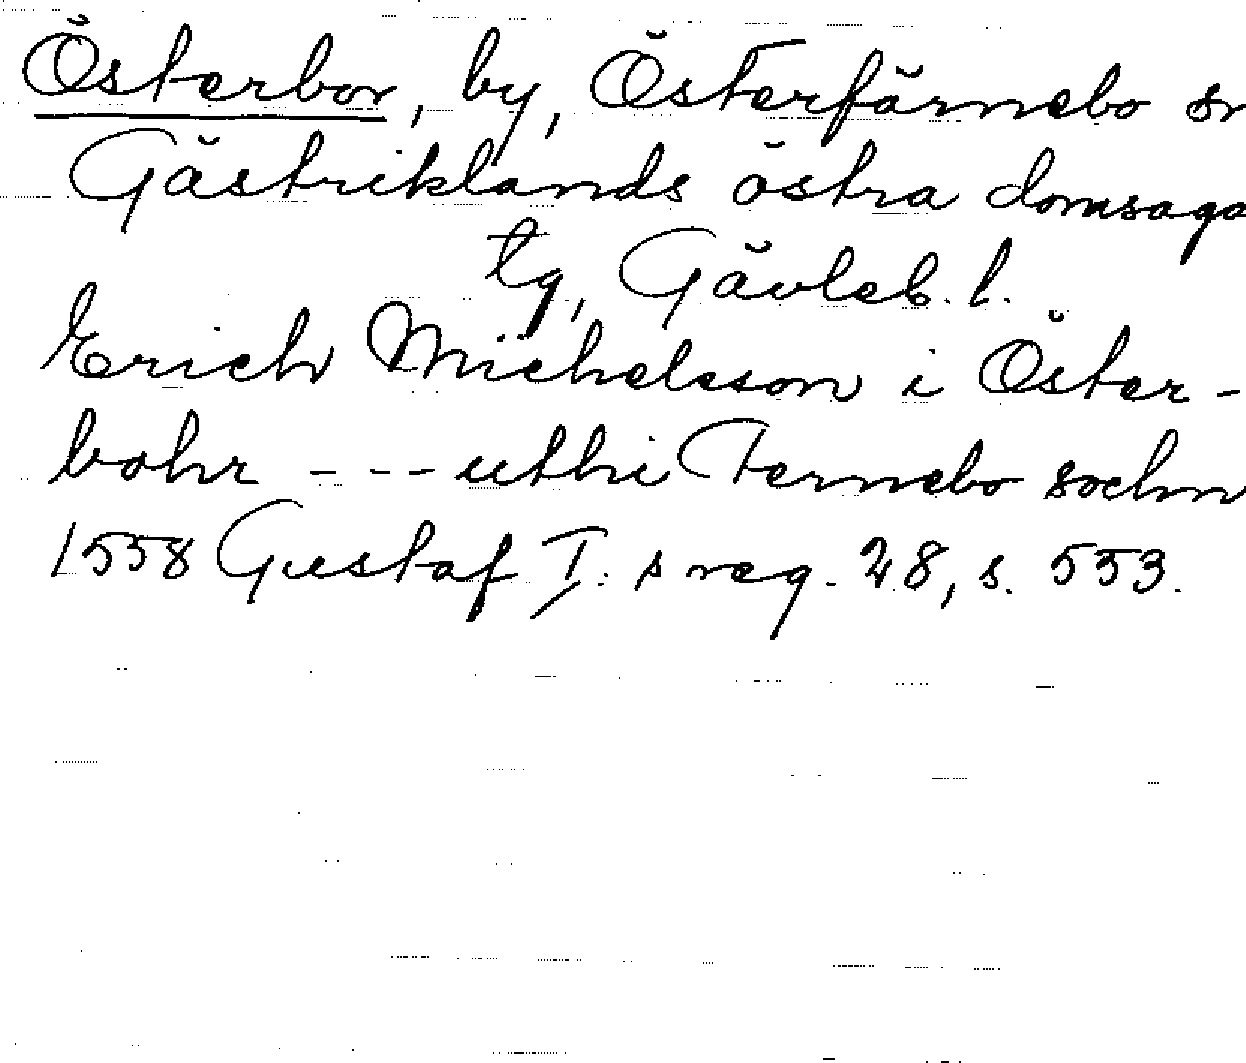 Österbor, by, Österfärnebo sn
Gästriklands östra domsaga
tg, Gävleb. l.
Erich Michelsson i Öster-
bohr --- uthi Fernebo sochn
1558 Gustaf I:s reg. 28, s. 553.